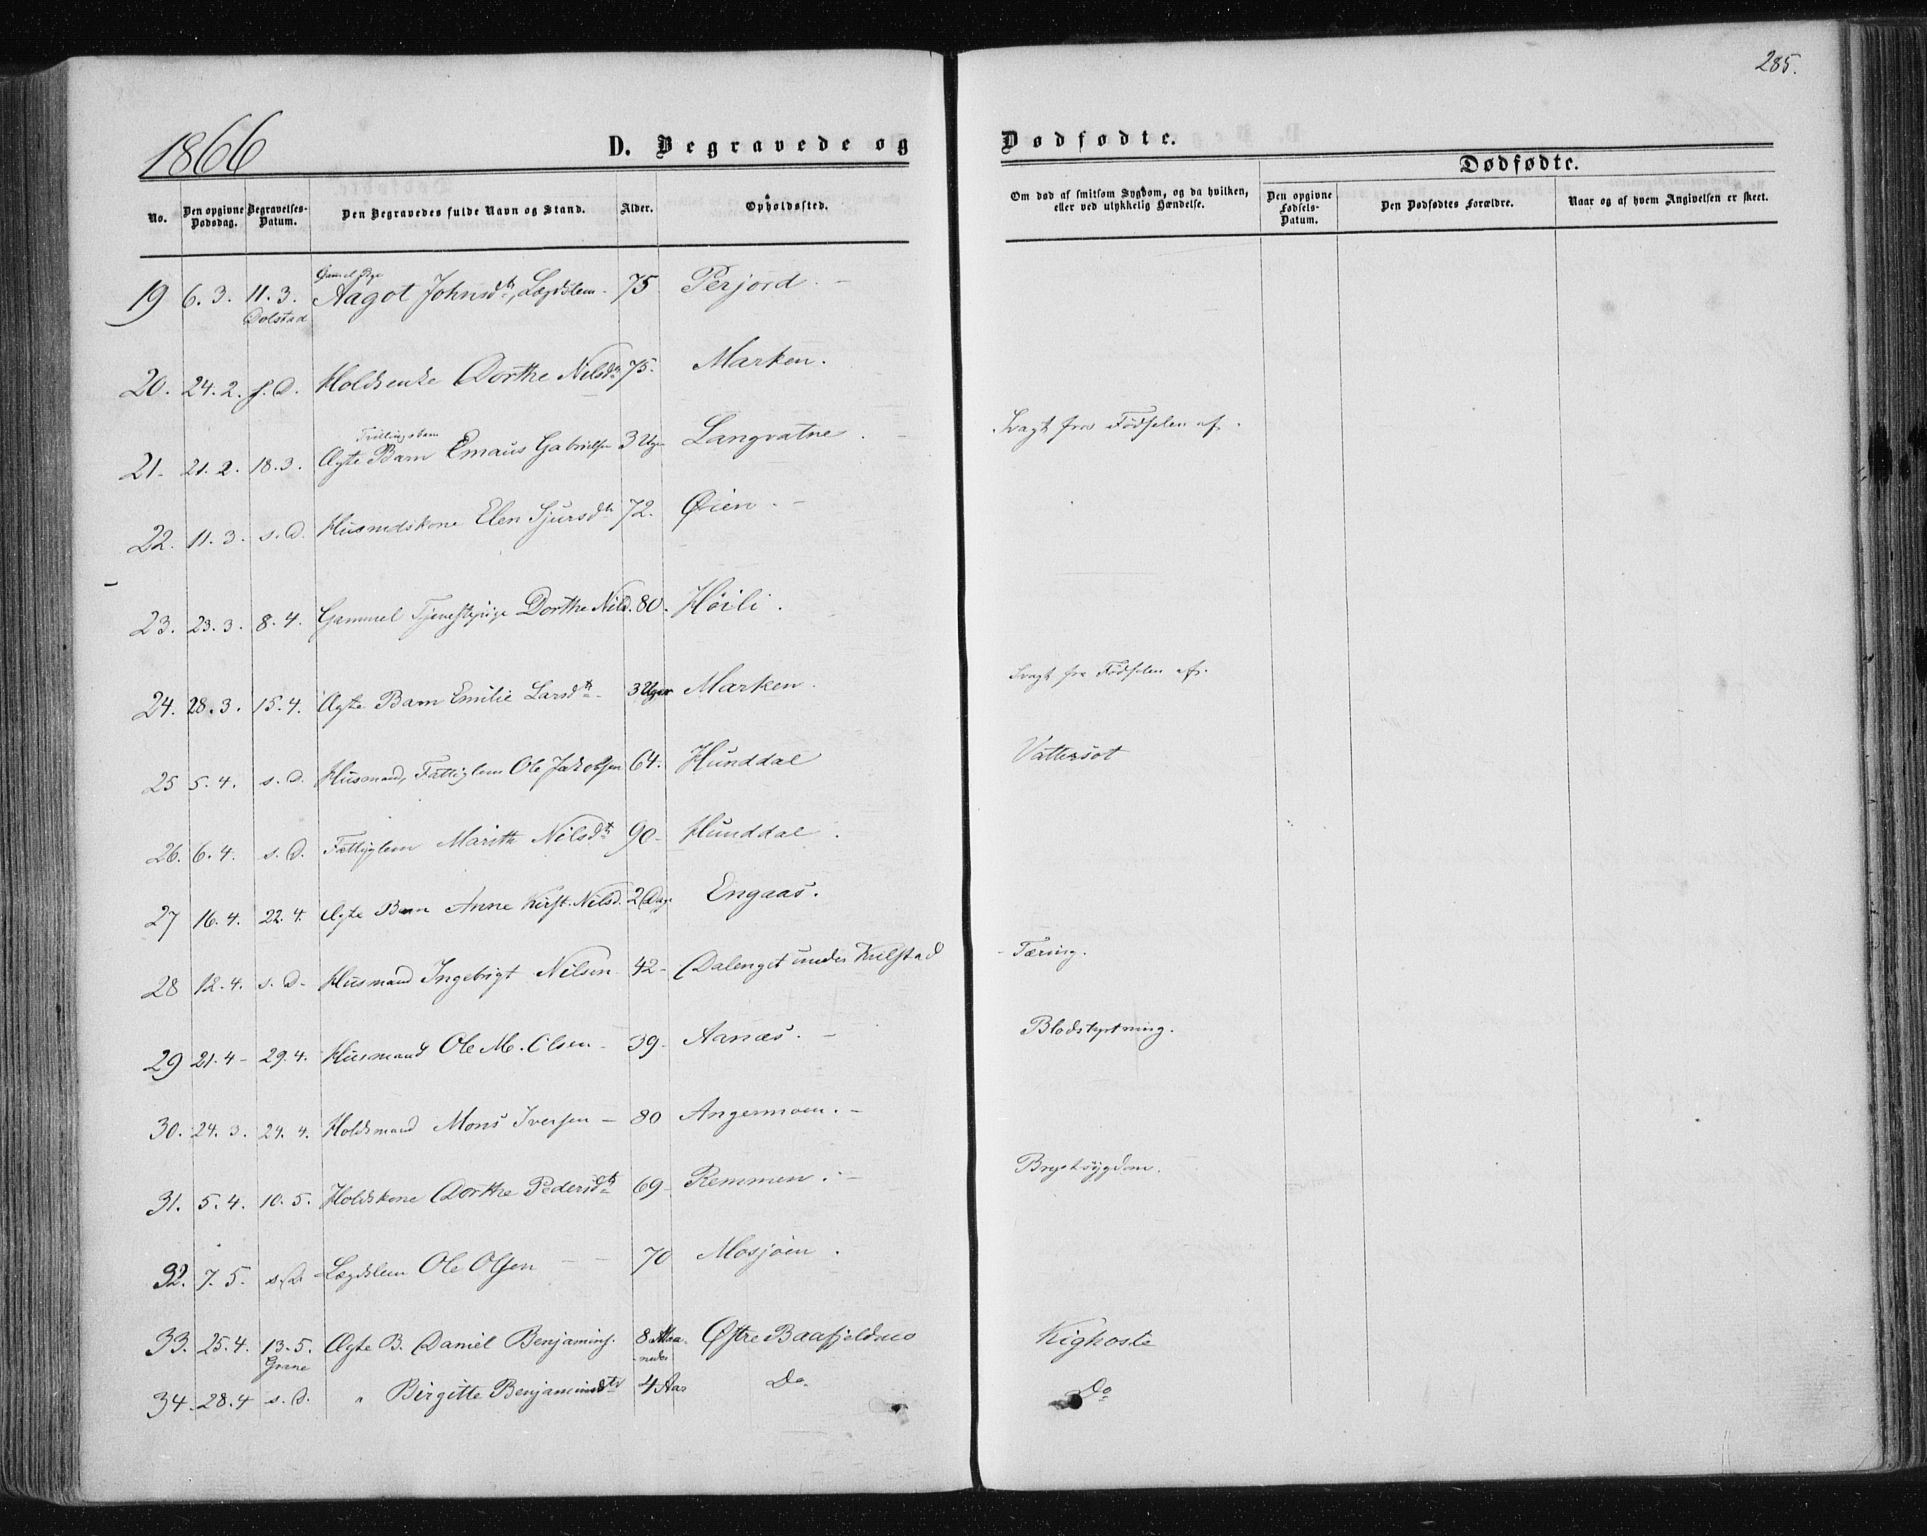 285.
1866
D. Begravede og Dødfødte.
Dødfødte.
No. Den opgivne Dødsdag. Begravelses-Datum. Den Begravedes fulde Navn og Stand. Alder. Opholdssted. Om død af smitsom Sygdom, og da hvilken, eller ved ulykkelig Hændelse. Den opgivne Fødsels-Datum. Den Dødfødtes Forældre. Naar og af hvem Angivelsen er skeet.
Gammel Pige
19 6. 3. 11. 3. Aagot Johnsdtr, Lægdslem - 75 Perjord. -
Dolstad
20. 24. 2. s. D. Dorthe Nilsdtr 75. Marken.
Tvillingebarn
21. 21. 2. 18. 3. Ægte Barn Emaus Gabrielsen 3 Uger Langvatne. - Svagt fra Fødselen af.
22. 11. 3. s. D. Husmdskone Elen Sjursdtr 72. Øien. -
23. 23. 3. 8. 4. Gammel Tjenestepige Dorthe Nilsd. 80. Høili.
24. 28. 3. 15. 4. Ægte Barn Emilie Larsdtr - 3 Uger Marken. Svagt fra Fødselen af.
25 5. 4. s. D. Husmand, Fattiglem Ole Jakobsen 64. Hunddal Vattersot
26. 6. 4. s. D. Fattiglem Marith Nilsdtr 90 - Hunddal.
27 16. 4. 22. 4. Ægte Barn Anne Kirst. Nilsd. 2 Dage Engaas.
28 12. 4. s. D. Husmand Ingebrigt Nilsen 42 - Dalenget under Kulstad - Tæring.
29 21. 4 - 29. 4. Husmand Ole M. Olsen - 39 - Aanæs. - Blodstyrtning.
30. 24. 3. 24. 4. Holdsmand Mons Iversen - 80 Angermoen. -
31. 5. 4. 10. 5. Holdskone Dorthe Pedersdtr 69 - Remmen. - Brystsygdom.
32. 7. 5. s. D. Lægdslem Ole Olsen - - 70 Mosjøen.
33. 25. 4. 13. 5. Ægte B. Daniel Benjamins. 8 Maa- Østre Baafjeldmo Kighoste
Grane neder
34. 28. 4 s. D. " Birgitte Benjaminsdtr 4 Aar Do. Do